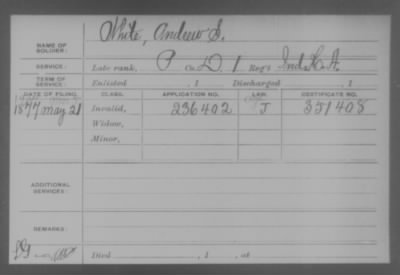 NAME OF SOLDIER: White, Andrew S.
SERVICE: Late rank, P Co. D 1 Reg't Ind. H. A.
TERM OF SERVICE: Enlisted , 1 Discharged , 1
DATE OF FILING. CLASS. APPLICATION NO. LAW. CERTIFICATE NO.
1877 May 21 Invalid, 236402 J 351408
Widow,
Minor,
ADDITIONAL SERVICES:
REMARKS:
Died , 1 , at